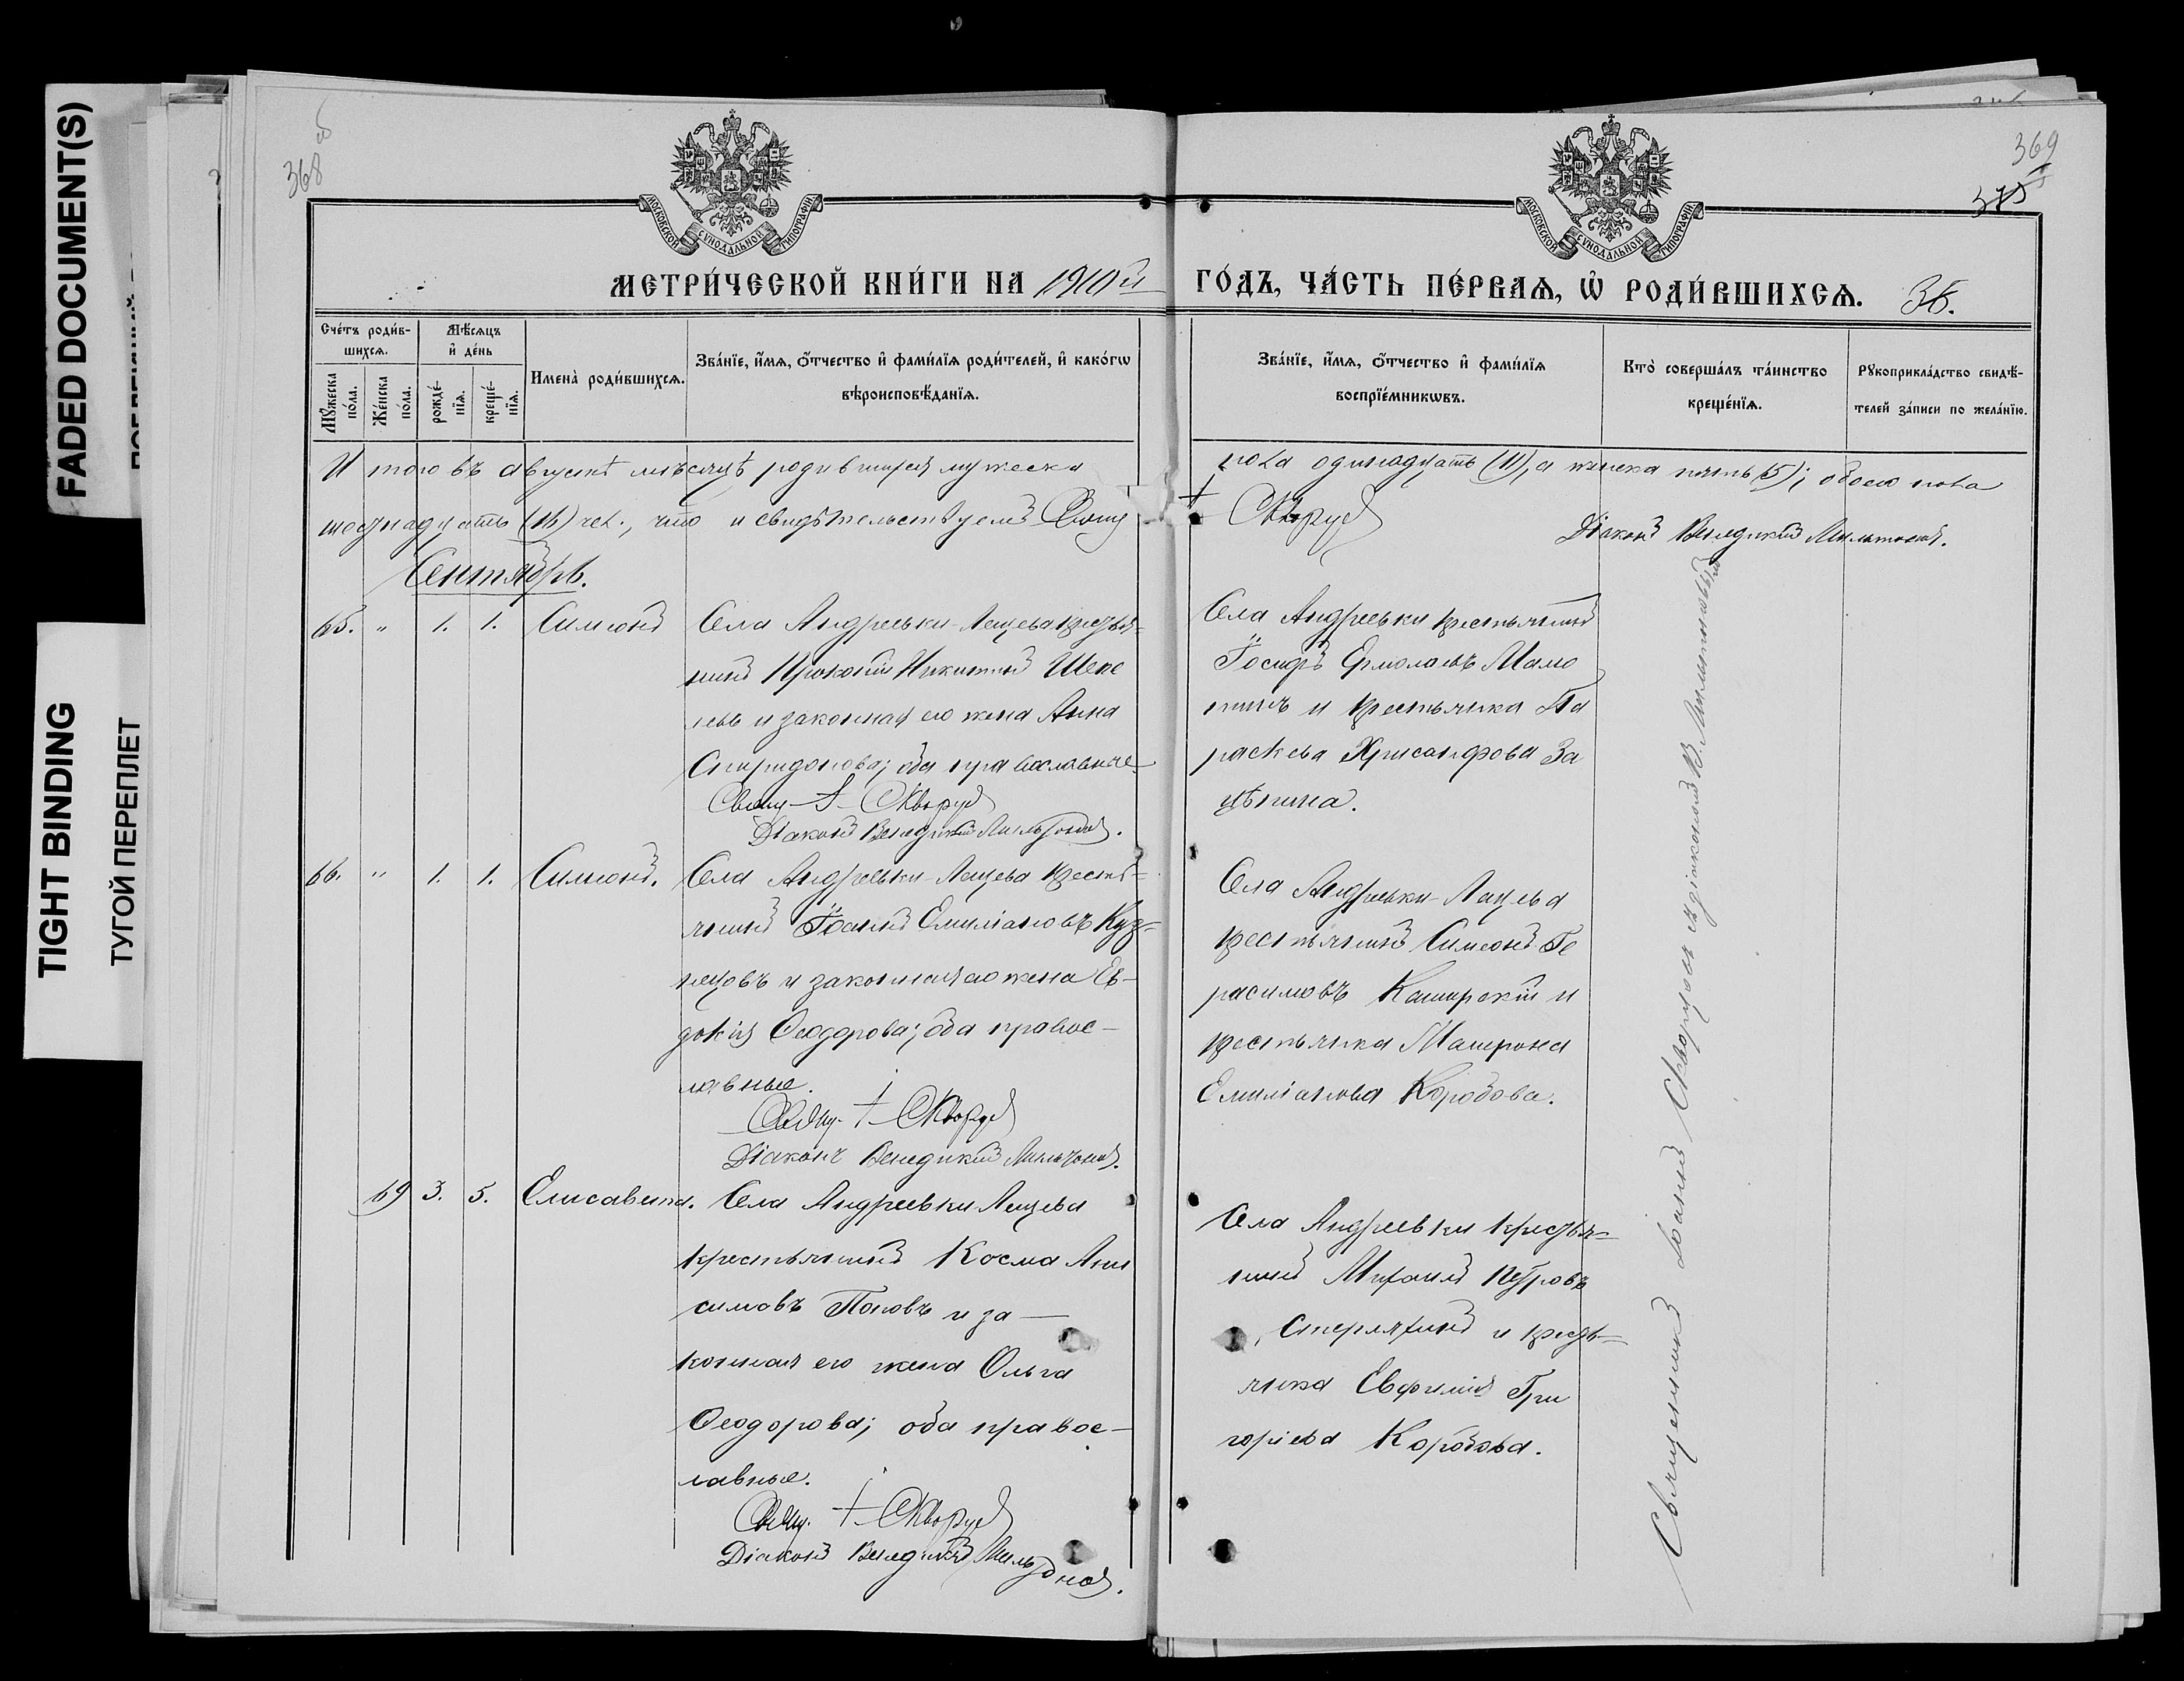 FADED DOCUMENT(S)
TIGHT BINDING
ТУГОЙ ПЕРЕПЛЕТ
368
об
369
375
МОСКОВСКОЙ СѴНОДАЛЬНОЙ ТИПОГРАФІИ
МОСКОВСКОЙ СѴНОДАЛЬНОЙ ТИПОГРАФІИ
МЕТРИ́ЧЕСКОЙ КНИ́ГИ НА 1910й ГО́ДЪ, ЧА́СТЬ ПЕ́РВАѦ, Ѡ҆ РОДИ́ВШИХСѦ.
Сче́тъ роди́в-
шихсѧ.
Мꙋ́жеска
по́ла.
Же́нска
по́ла.
Мѣ́сѧцъ
и҆ де́нь
рожде́-
нїѧ.
креще́-
нїѧ.
Имена̀ роди́вшихсѧ.
Зва́нїе, и҆́мѧ, о҆́тчество и҆ фами́лїѧ роди́телей, и҆ како́гѡ
вѣроисповѣ́данїѧ.
Зва́нїе, и҆́мѧ, о҆́тчество и҆ фами́лїѧ
воспрїе́мникѡвъ.
Кто̀ соверша́лъ та́инство
креще́нїѧ.
Рꙋкоприкла́дство свидѣ́-
телей за́писи по жела́нїю.
Итого въ августѣ мѣсяцѣ родившихся мужеска пола одинадцать (11), а женска пять (5); обоего пола
шестнадцать (16) чел., что и свидѣтельствуемъ Свящ. + Скворцовъ
Діаконъ Венедиктъ Мильтоновъ.
Сентябрь.
65. " 1. 1. Симеонъ
Села Андреевки-Лещева крестья-
нинъ Прокопій Никитинъ Шеко
левъ и законная его жена Анна
Спиридонова; оба православные
Свящ. + Скворцовъ
Діаконъ Венедиктъ Мильтоновъ.
Села Андреевки крестьянинъ
Іосифъ Ермолаевъ Мамо
нинъ и крестьянка Па
раскева Хрисанфова За
цѣпина.
66. " 1. 1. Симеонъ.
Села Андреевки-Лещева кресть-
янинъ Іоаннъ Емиліановъ Куз-
нецовъ и законная его жена Ев-
докія Ѳеодорова; оба правос-
лавные.
Свящ. + Скворцовъ
Діаконъ Венедиктъ Мильтоновъ.
Села Андреевки-Лещева
крестьянинъ Симеонъ Ге
расимовъ Каширскій и
крестьянка Матрона
Емиліанова Коробова.
69 3. 5. Елисавета.
Села Андреевки Лещева
крестьянинъ Косма Ани
симовъ Поповъ и за-
конная его жена Ольга
Ѳеодорова; оба правос-
лавные.
Свящ. + Скворцовъ
Діаконъ Венедиктъ Мильтоновъ.
Села Андреевки крестья-
нинъ Михаилъ Петровъ
Стерляхинъ и кресть-
янка Евфимія Гри
горіева Коробова.
Священникъ Іоаннъ Скворцовъ съ діакономъ В. Мильтоновымъ